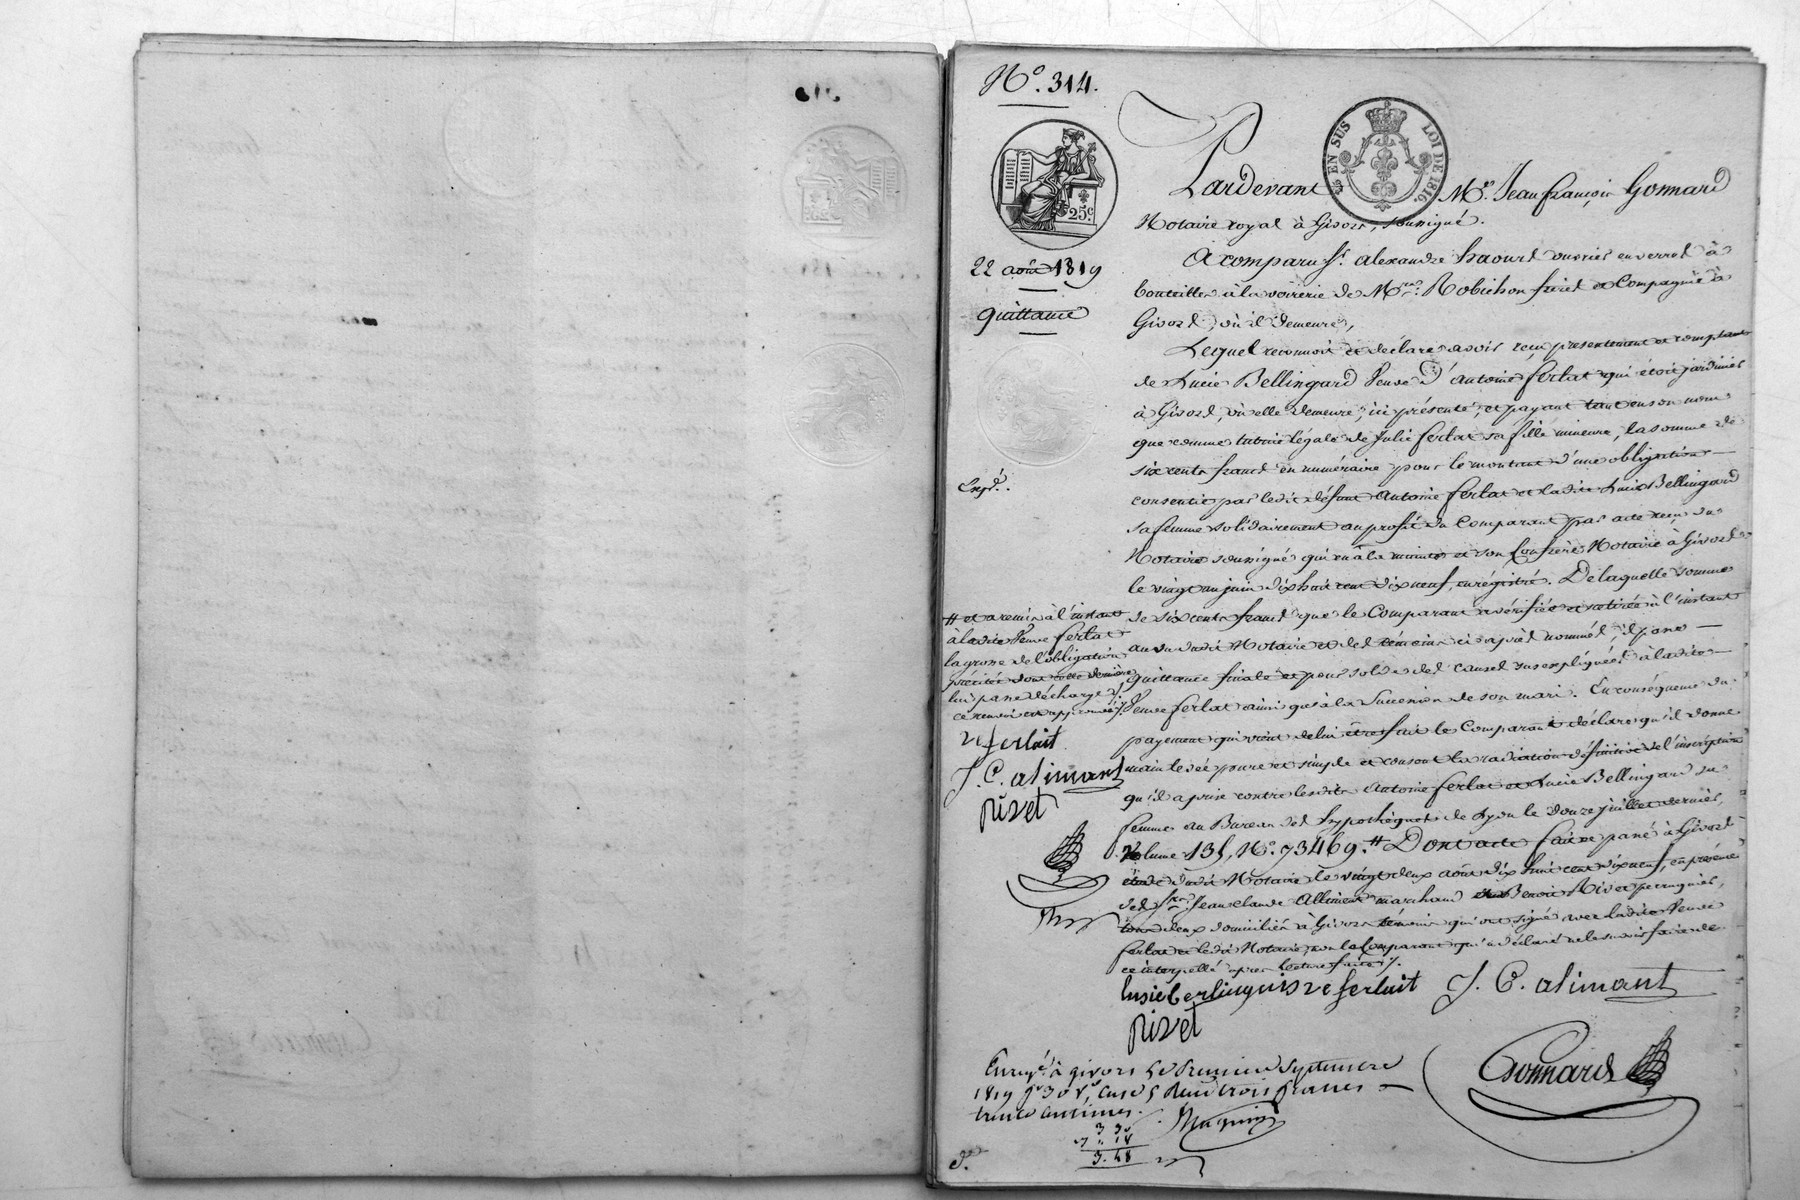 N.º 314.
EN SUS LOI DE 1816.
25.c
22 août 1819
quittance
Pardevant M.e Jean françois Gonnard
Notaire royal à Givors, soussigné.
A comparu S.r alexandre haour ouvrier en verres à
bouteilles à la verrerie de M.rs Robichon freres et Compagnie à
Givors, où il demeure,
Lequel reconnoit et déclare avoir reçu présentement et comptant
de Lucie Bellingard Veuve d'antoine ferlat qui étoit jardinier
à Givors, où elle demeure, ici présente, et payant tant en son nom
que comme tutrice légale de Julie ferlat sa fille mineure, la somme de
six cents francs en numéraire pour le montant d'une obligation
consentie par ledit défunt Antoine ferlat et ladite Lucie Bellingard
sa femme solidairement au profit du Comparant par acte reçu du
Notaire soussigné qui en a la minute et son Confrère Notaire à Givors
le vingt un juin dix huit cent dix neuf, enrégistré. De laquelle somme
de six cents francs que le Comparant a vérifiée et retirée à l'instant
au vu dudit Notaire et des témoins ci après nommés, il passe
quittance finale et pour solde des causes sus expliquées à ladite
Veuve ferlat ainsi qu'à la Succession de son mari. En conséquence du
payement qui vient de lui être fait le Comparant déclare qu'il donne
main levée pure et simple et consent la radiation définitive de l'inscription
qu'il a prise contre lesdits Antoine ferlat et Lucie Bellingard sa
femme au Bureau des hypothèques de Lyon le douze juillet dernier,
Volume 135, N.º 73469. # Dont acte fait et passé à Givors
étude dudit Notaire le vingt deux août dix huit cent dix neuf, en présence
des S.rs Jean claude Alliment marchand et Benoit Rivet perruquier,
tous deux domiciliés à Givors témoins qui ont signé avec ladite Veuve
ferlat et ledit Notaire, non le Comparant qui a déclaré ne le savoir faire de
ce interpellé apres lecture faite ./.
Exp.é
# et a remis à l'instant
à ladite Veuve ferlat
la grosse de l'obligation
précitée dont cette dernière
lui passe décharge ./.
ce renvoi est approuvé ./.
ve ferlait
J. C. alimant
rivet
lusie berlinguis ve ferlait J. C. alimant
rivet
Gonnard
Enreg.é à givors le premier Septembre
1819 f.o 30 v.o, case 5 Reçu trois francs
trente centimes.
3 30
18
3. 48